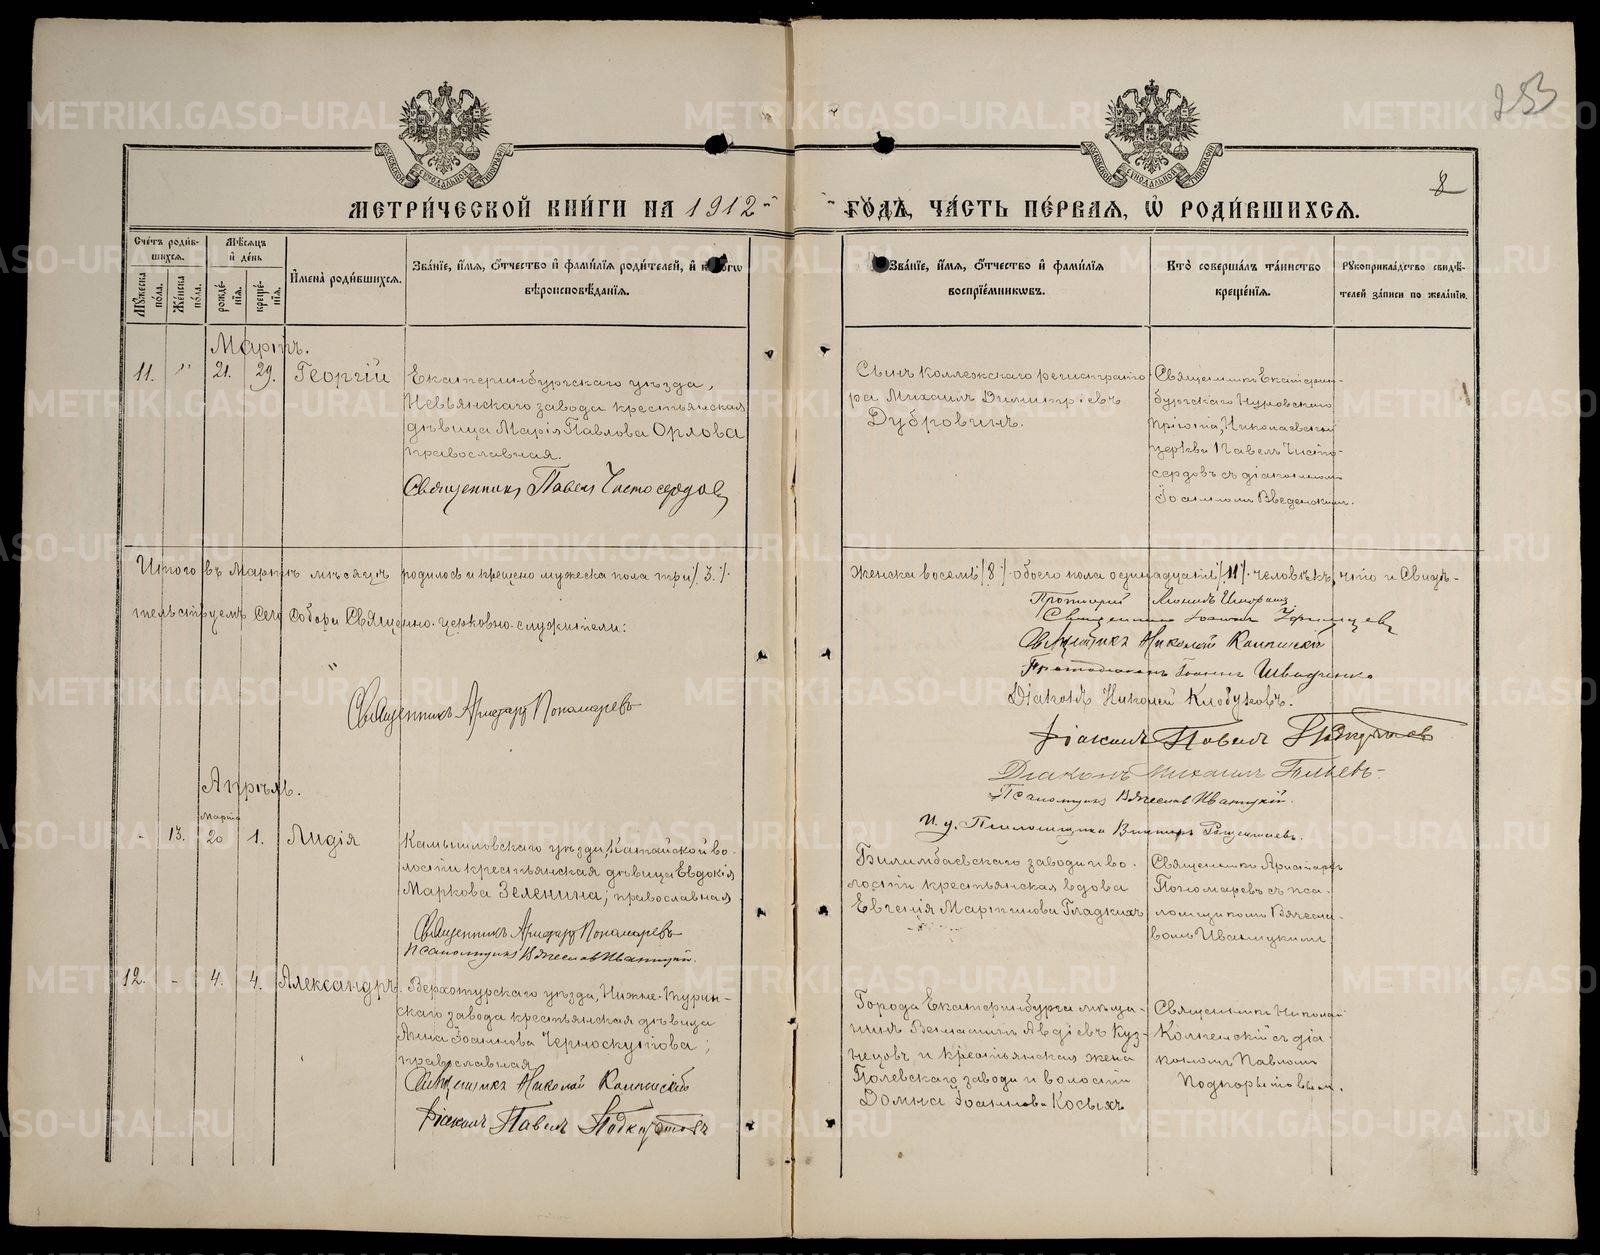 253
8
МОСКОВСКОЙ СѴНОДАЛЬНОЙ ТИПОГРАФІИ
МОСКОВСКОЙ СѴНОДАЛЬНОЙ ТИПОГРАФІИ
МЕТРИ́ЧЕСКОЙ КНИ́ГИ НА 1912
ГО́ДЪ, ЧА́СТЬ ПЕ́РВАЯ, Ѡ РОДИ́ВШИХСЯ.
Сче́тъ роди́в-
шихся.
Му́жеска по́ла.
Же́нска по́ла.
Мѣ́сяцъ
и де́нь
рожде́нія.
креще́нія.
Имена̀ роди́вшихся.
Зва́ніе, и́мя, о́тчество и фами́лія роди́телей, и како́гѡ
вѣроисповѣ́данія.
Зва́ніе, и́мя, о́тчество и фами́лія
воспріе́мниковъ.
Кто̀ соверша́лъ та́инство
креще́нія.
Рукоприкла́дство свидѣ́-
телей за́писи по жела́нію.
Мартъ.
11. " 21. 29. Георгій
Екатеринбургскаго уѣзда,
Невьянскаго завода крестьянская
дѣвица Марія Павлова Орлова
православная.
Священникъ Павелъ Чистосердовъ
Сынъ коллежскаго регистрато-
ра Михаилъ Димитріевъ
Дубровинъ.
Священникъ Екатерин-
бургскаго Нуровскаго
пріюта, Николаевской
церкви Павелъ Чисто-
сердовъ съ діакономъ
Іоанномъ Введенскимъ.
Итого въ Мартѣ мѣсяцѣ родилось и крещено мужеска пола три /3./.
женска восемь /8/. обоего пола одинадцать /11/. человѣкъ, что и Свидѣ-
тельствуемъ Сего Собора Священно-церковно-служители:
Протоіерей
Священникъ Іоаннъ
Священникъ Николай
Протодіаконъ Іоаннъ
Діаконъ Николай Клобуковъ.
Священникъ Аристархъ Пономаревъ
Діаконъ Павелъ Подкорытовъ
Діаконъ Михаилъ
Псаломщикъ Вячеславъ Иваницкій.
И. д. Псаломщика Викторъ
Апрѣль.
Марта
- 13. 20 1. Лидія
Камышловскаго уѣзда, Катайской во-
лости крестьянская дѣвица Евдокія
Маркова Зеленина; православная
Священникъ Аристархъ Пономаревъ
Псаломщикъ Вячеславъ Иваницкій.
Билимбаевскаго завода и во-
лости крестьянская вдова
Евгенія Мартинова Гладкихъ
Священникъ Аристархъ
Пономаревъ съ пса-
ломщикомъ Вячесла-
вомъ Иваницкимъ
12. - 4. 4. Александръ.
Верхотурскаго уѣзда, Нижне-Турин-
скаго завода крестьянская дѣвица
Анна Іоаннова Черноскутова;
православная
Священникъ Николай
Діаконъ Павелъ Подкорытовъ
Города Екатеринбурга мѣща-
нинъ Веніаминъ Авдіевъ Куз-
нецовъ и крестьянская жена
Полевскаго завода и волости
Домна Іоаннова Косыхъ
Священникъ Николай
съ діа-
кономъ Павломъ
Подкорытовымъ.
METRIKI.GASO-URAL.RU